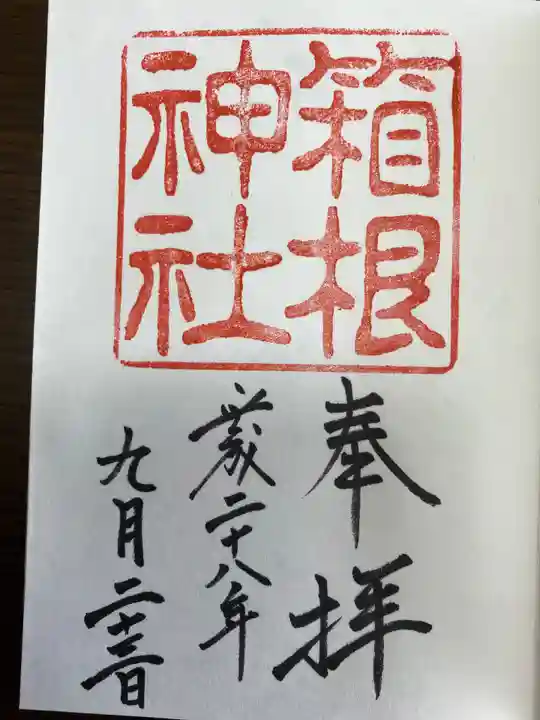 箱根
神社
奉拝
平成二十八年
九月二十三日